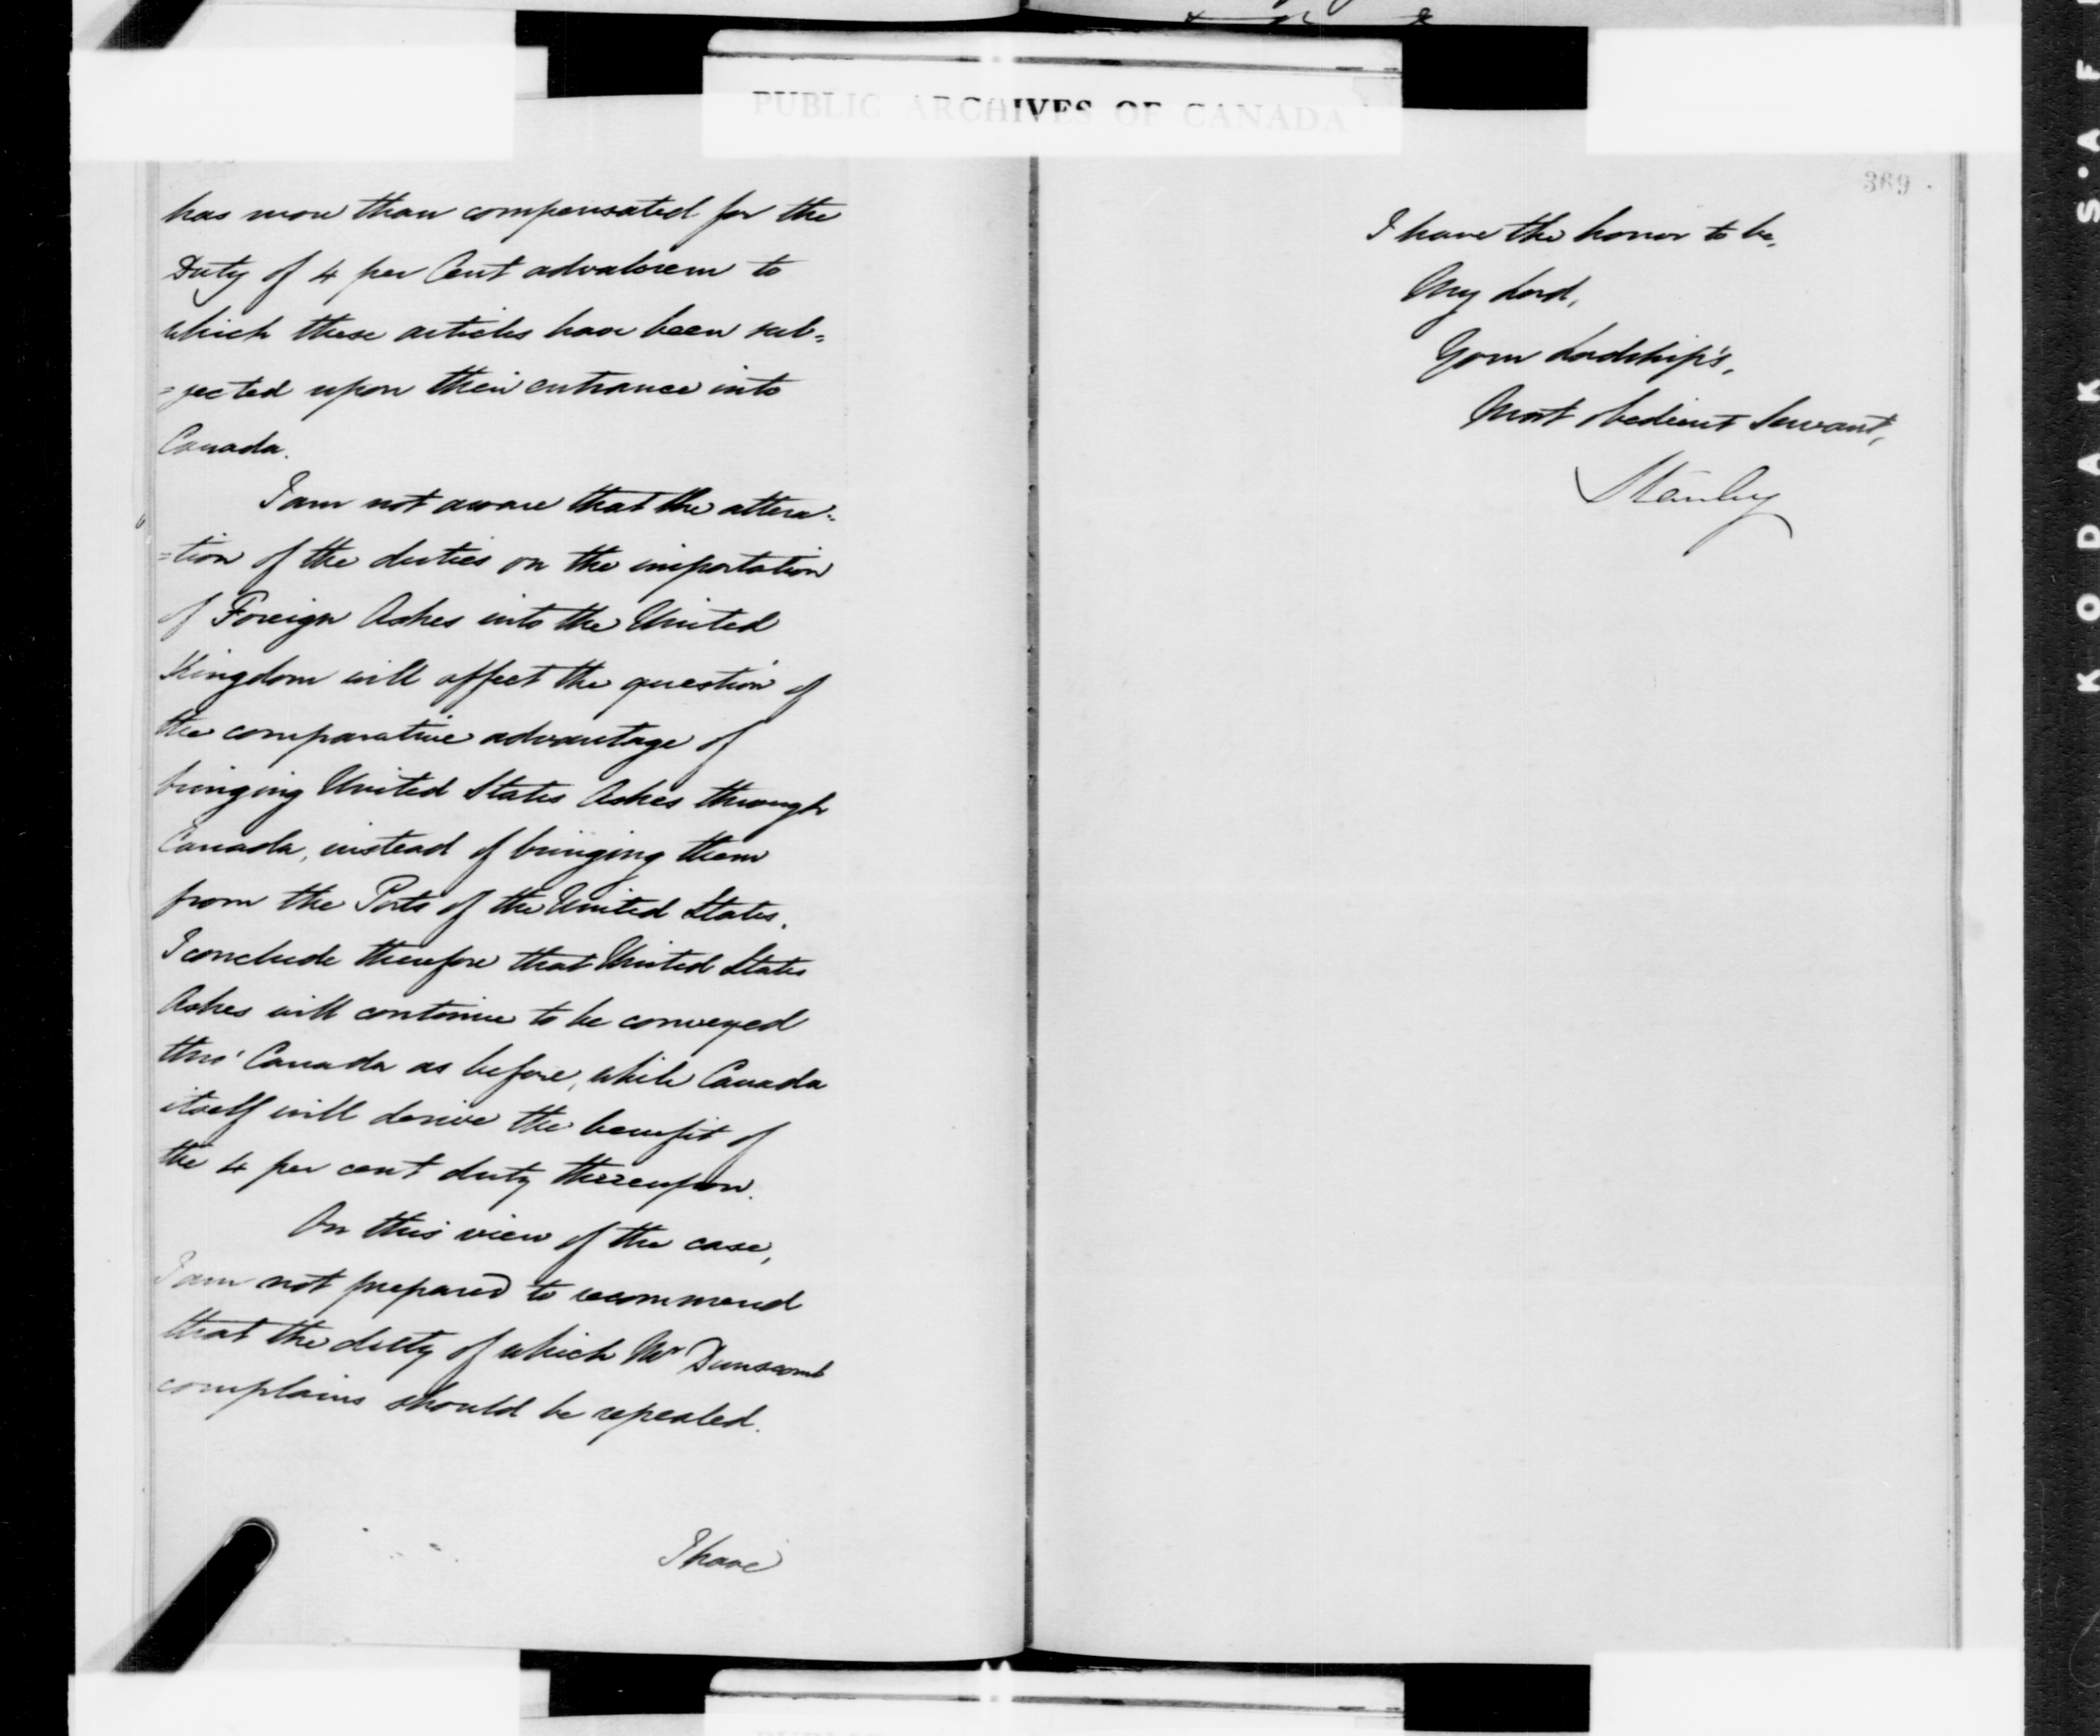 PUBLIC ARCHIVES OF CANADA
has more than compensated for the
Duty of 4 per Cent advalorem to
which these articles have been sub=
=jected upon their entrance into
Canada.
I am not aware that the altera=
=tion of the duties on the importation
of Foreign Ashes into the United
Kingdom will affect the question of
the comparative advantage of
bringing United States Ashes through
Canada, instead of bringing them
from the Ports of the United States.
I conclude therefore that United States
Ashes will continue to be conveyed
thro' Canada as before, while Canada
itself will derive the benefit of
the 4 per cent duty thereupon.
On this view of the case,
I am not prepared to recommend
that the duty of which Mr Dunscomb
complains should be repealed.
I have
369
I have the honor to be,
My Lord,
Your Lordship's,
Most obedient Servant,
Stanley
KODAK S.AF